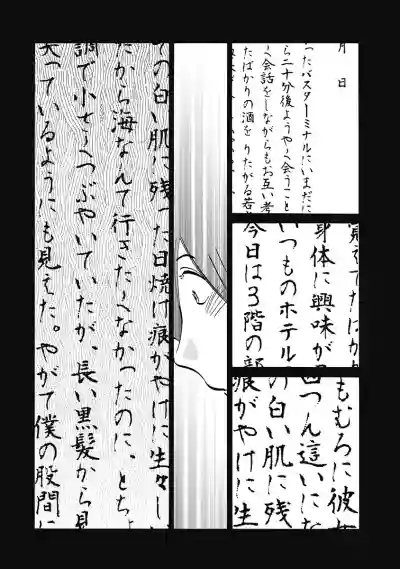 月　日
ったバスターミナルにいまだに
ら二十分後ようやく会うこと
く会話をしながらもお互い考
たばかりの酒を りたがる若
身体に興味が
いつものホテル
今日は3階の部
もむろに彼女
四つん這いにな
の白い肌に残
痕がやけに生
ての白い肌に残った日焼け痕がやけに生々し
たから海なんて行きたくなかったのに、とち
調で小さくつぶやいていたが、長い黒髪から見
笑っているようにも見えた。やがて僕の股間に